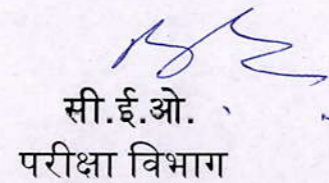 सी.ई.ओ.
परीक्षा विभाग